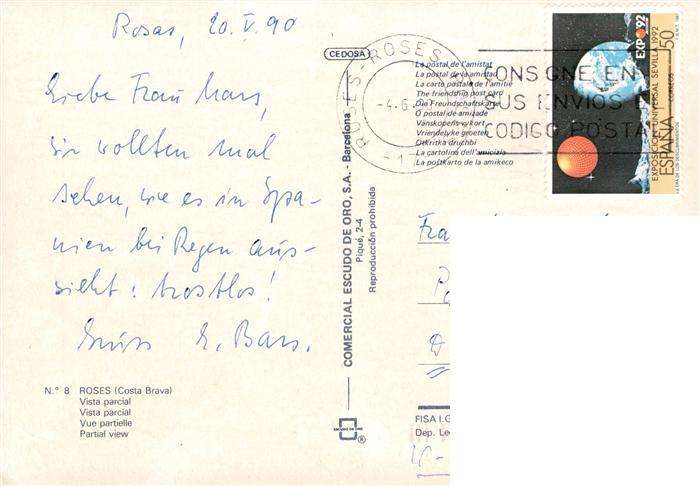 Rosas, 20.V.90
Liebe Frau
wir wollten mal
sehen, wie es in Spa-
nien bei Regen aus-
sieht: trostlos!
N.° 8 ROSES (Costa Brava)
Vista parcial
Vista parcial
Vue partielle
Partial view
CEDOSA
COMERCIAL ESCUDO DE ORO, S.A. - Barcelona
Piqué, 2-4
Reproducción prohibida
ESCUDO DE ORO
®
La postal de l'amistat
La postal de la amistad
La carte postale de l'amitié
The friendship post card
Die Freundschaftskarte
O postal de amizade
Vänskapens vykort
Vriendelyke groeten
Otkritka druchbi
La cartolina dell'amicizia
La postkarto de la amikeco
ROSES - ROSES
- 4.6.
- 1
CONSIGNE EN
SUS ENVIOS
CODIGO POSTAL
EXPO 92
EXPOSICION UNIVERSAL SEVILLA 1992
ESPAÑA
CORREOS
50
FISA I.G
Dep. Le